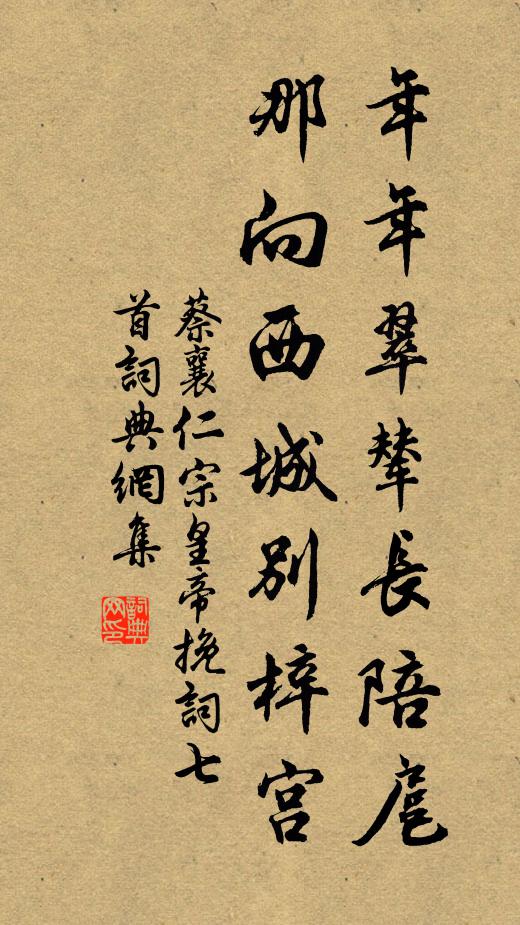 年年翠輦長陪扈
那向西城別梓宮
蔡襄仁宗皇帝挽詞七
首詞典網集
詞典
网印